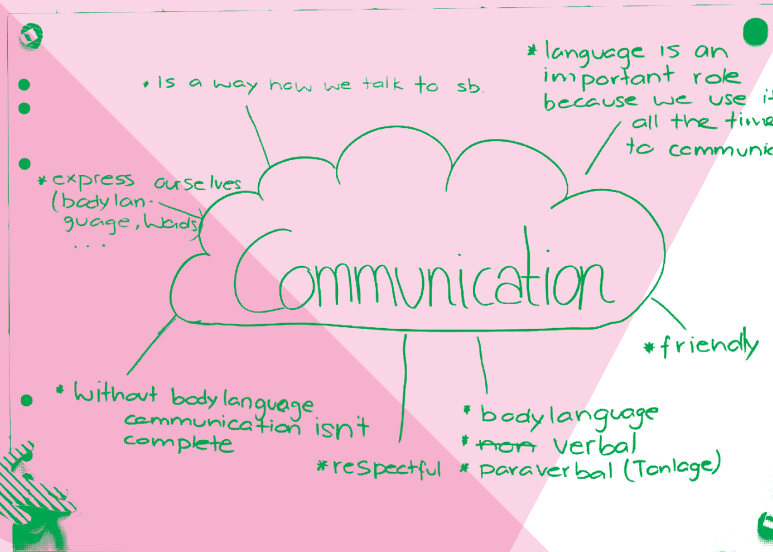 * is a way how we talk to sb.
* language is an
important role
because we use it
all the time
to communic
* express ourselves
(body lan-
guage, Words)
...
Communication
* friendly
* Without body language
communication isn't
complete
* respectful
* body language
* non verbal
* paraverbal (Tonlage)